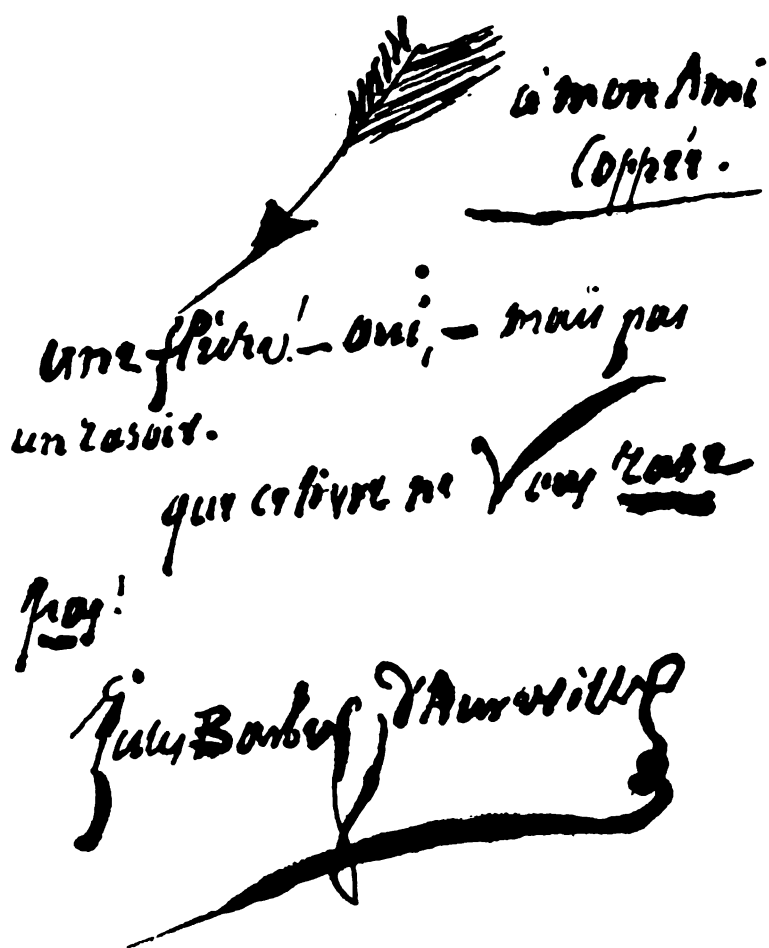 à mon Ami
Coppée.
une flèche! – oui, – mais pas
un rasoir.
que ce livre ne Vous rase
pas!
Jules Barbey d'Aurevilly